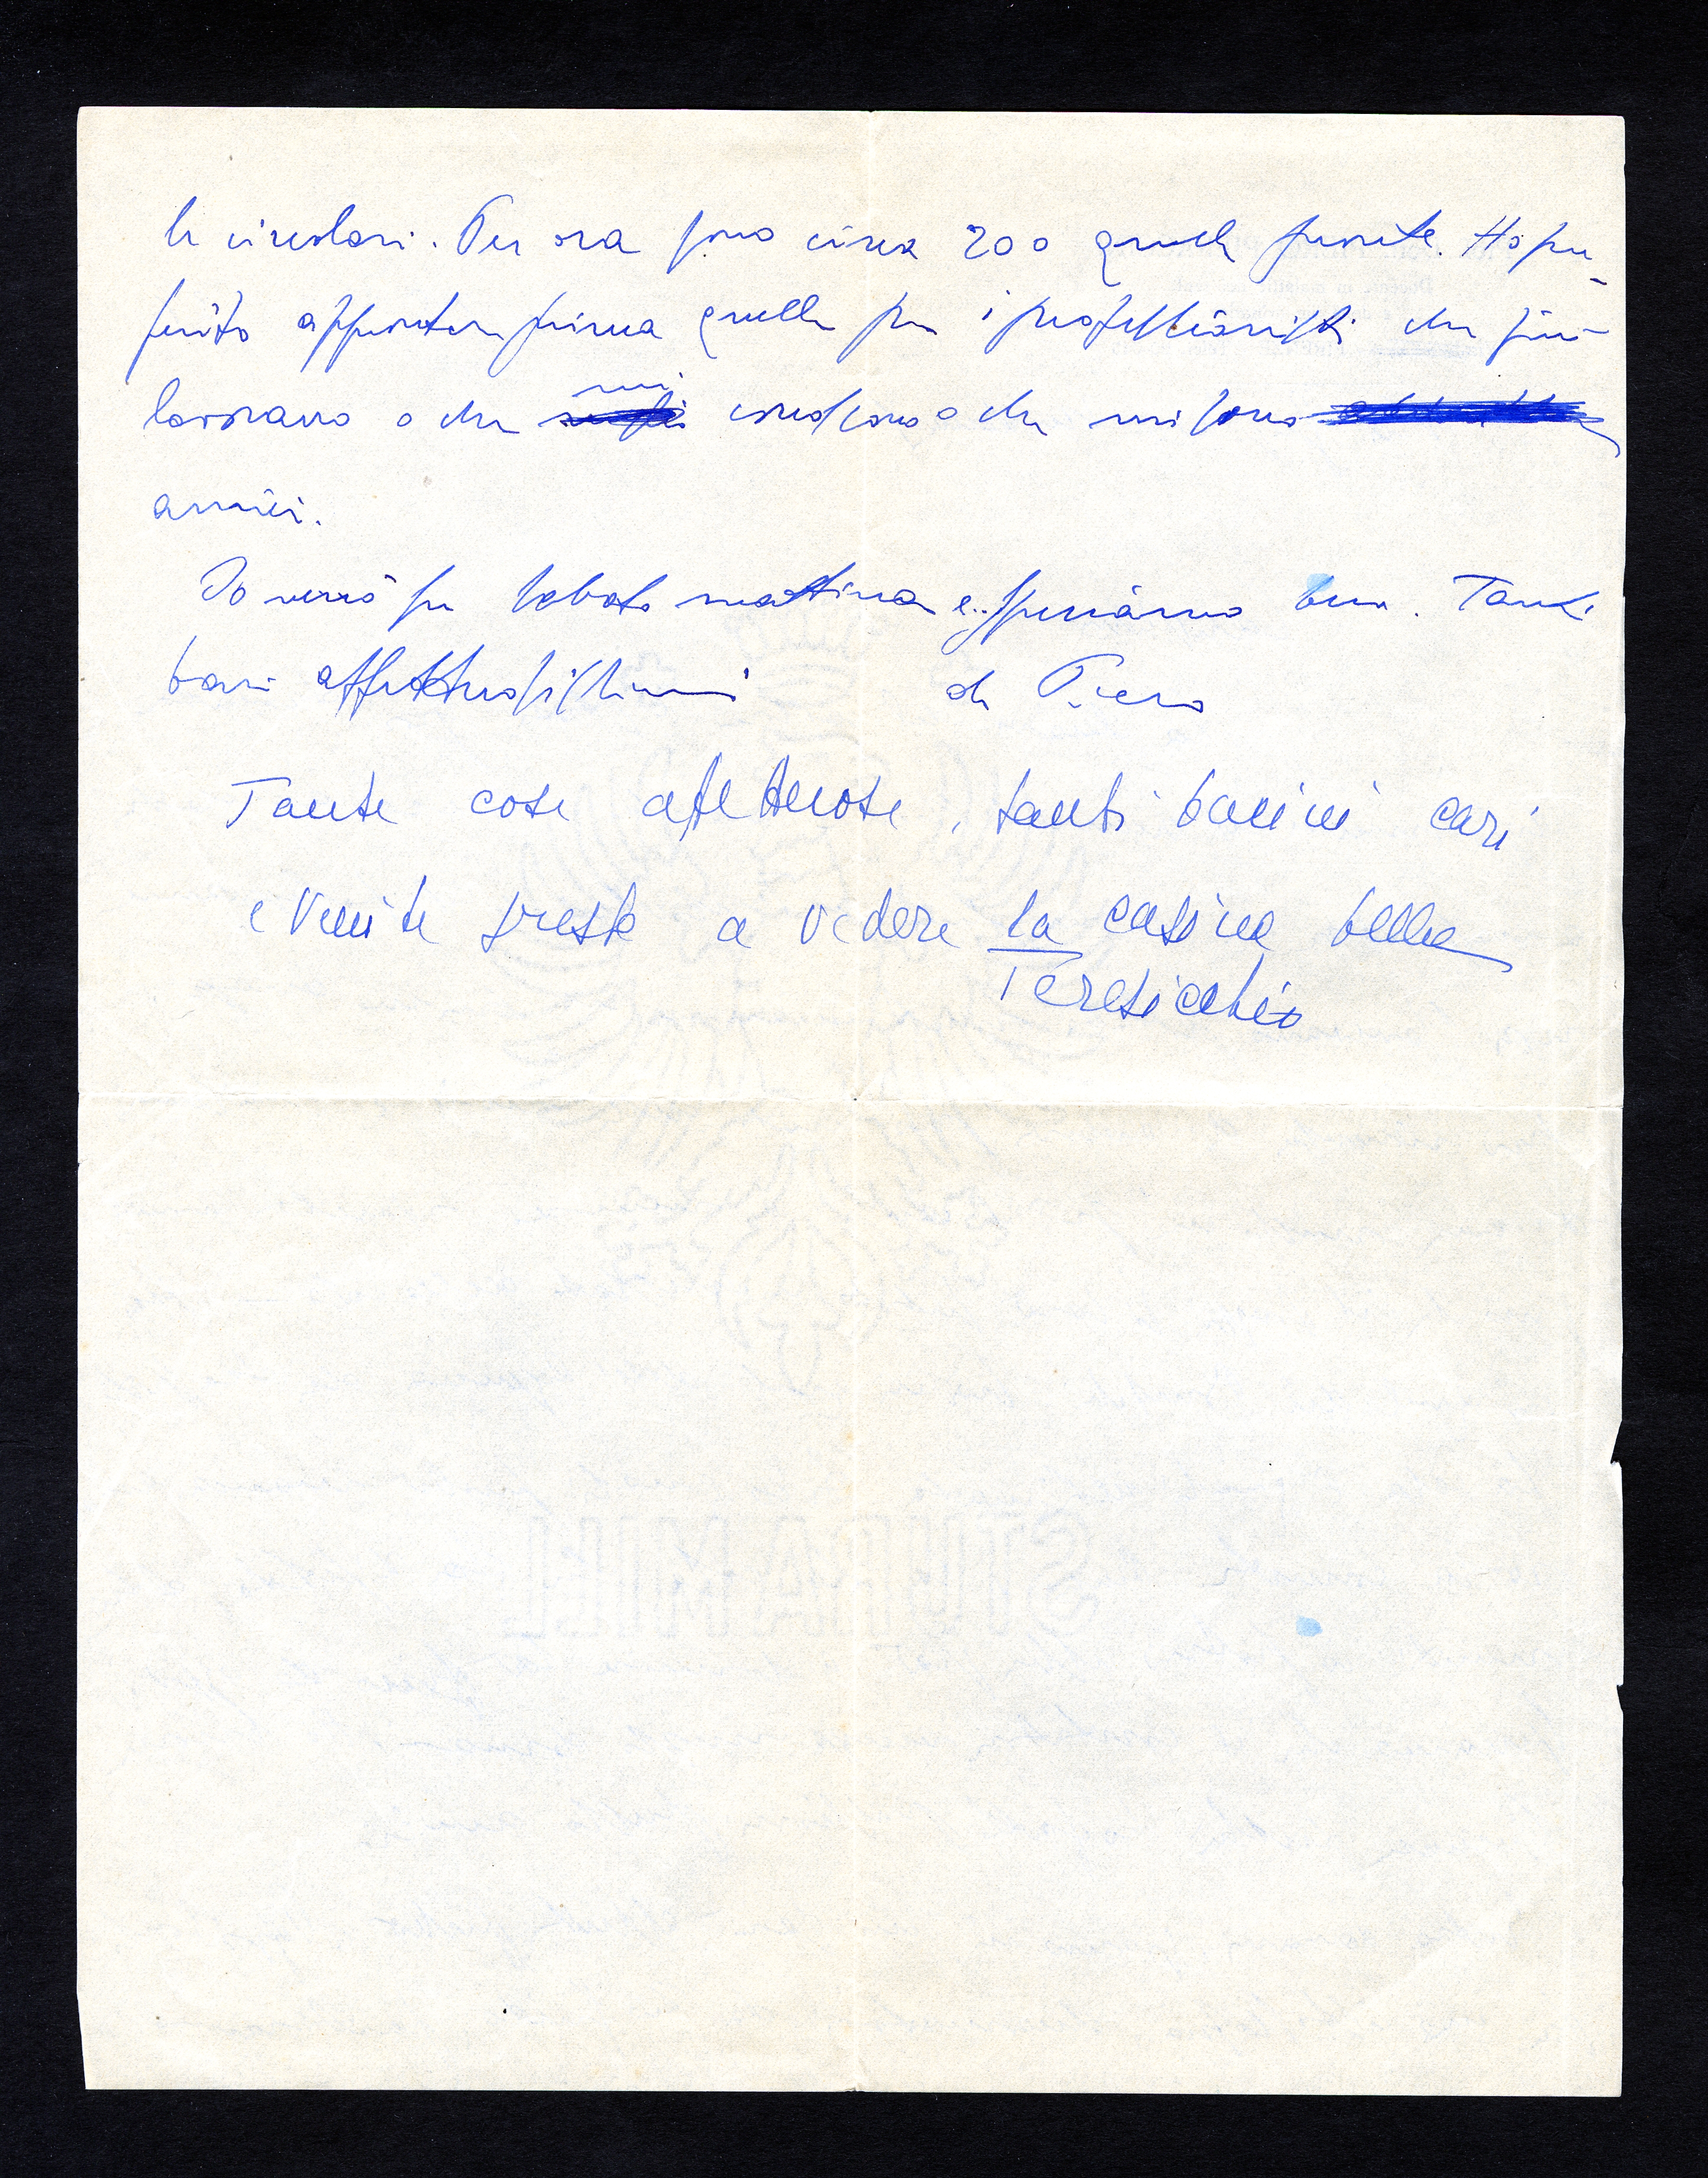 le circolari. Per ora sono circa 200 quelle pronte. Ho pre-
ferito approntare prima quelle per i professionisti che più
lavorano o che mi conoscono o che mi sono
amici.
Io verrò su sabato mattina e speriamo bene. Tanti
baci affettuosissimi di Piero
Tante cose affettuose, tanti bacini cari
e venite presto a vedere la casina bella
Teresicchio